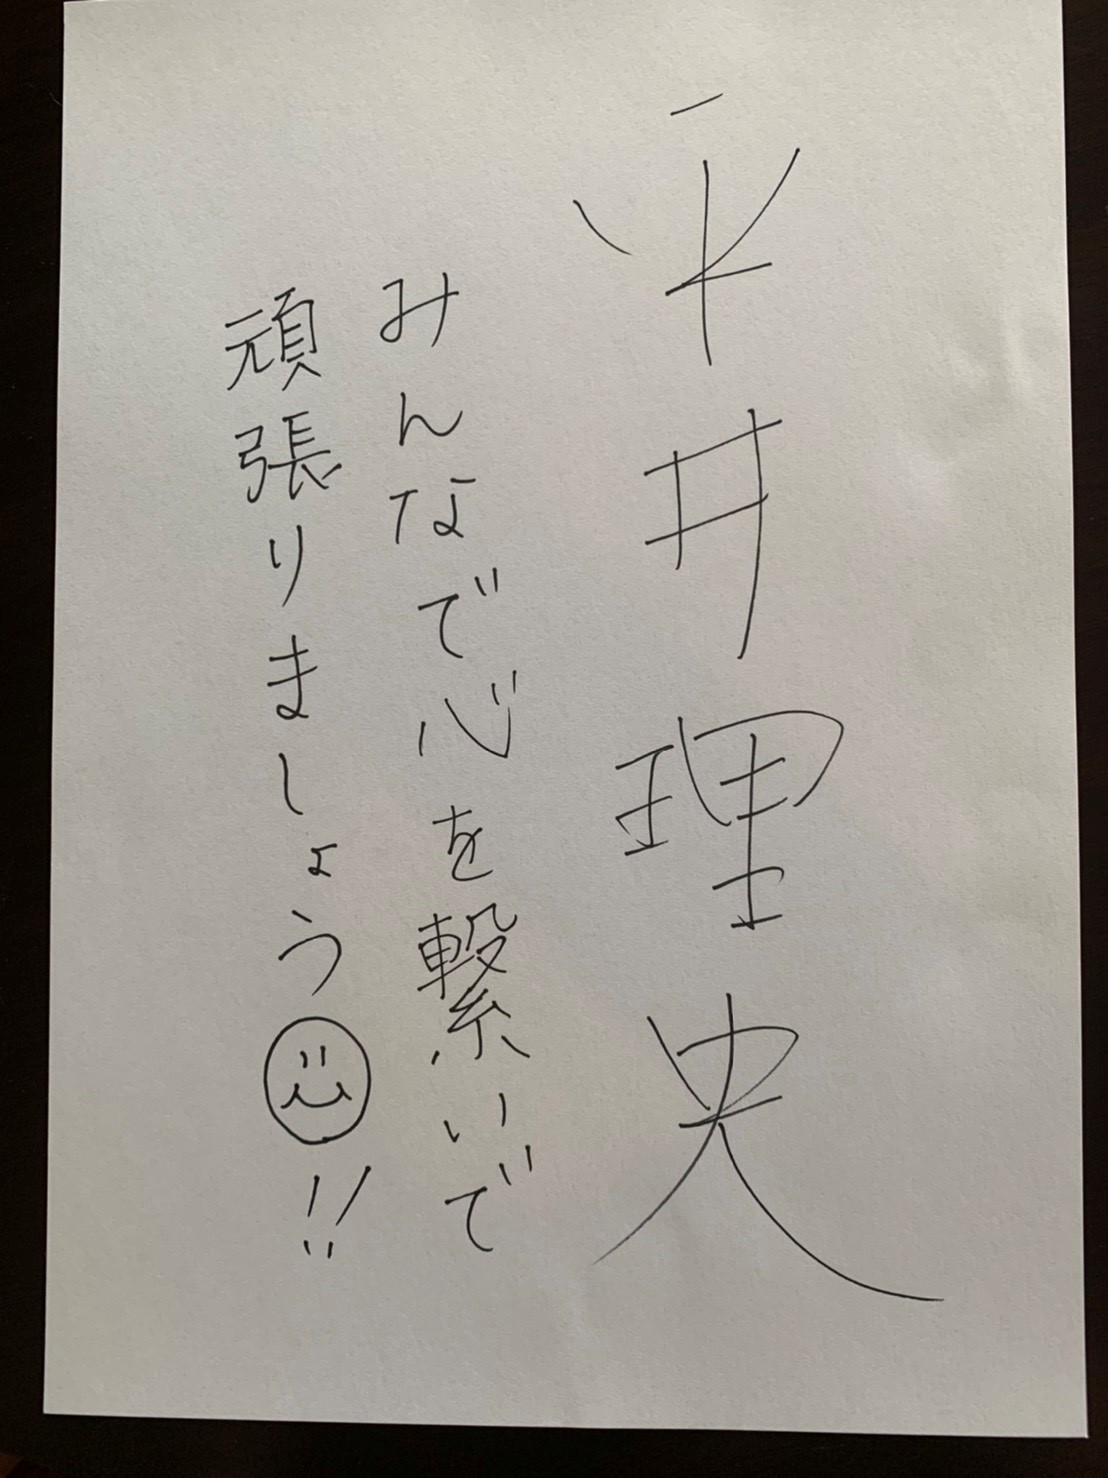 平井理央
みんなで心を繋いで
頑張りましょう!!